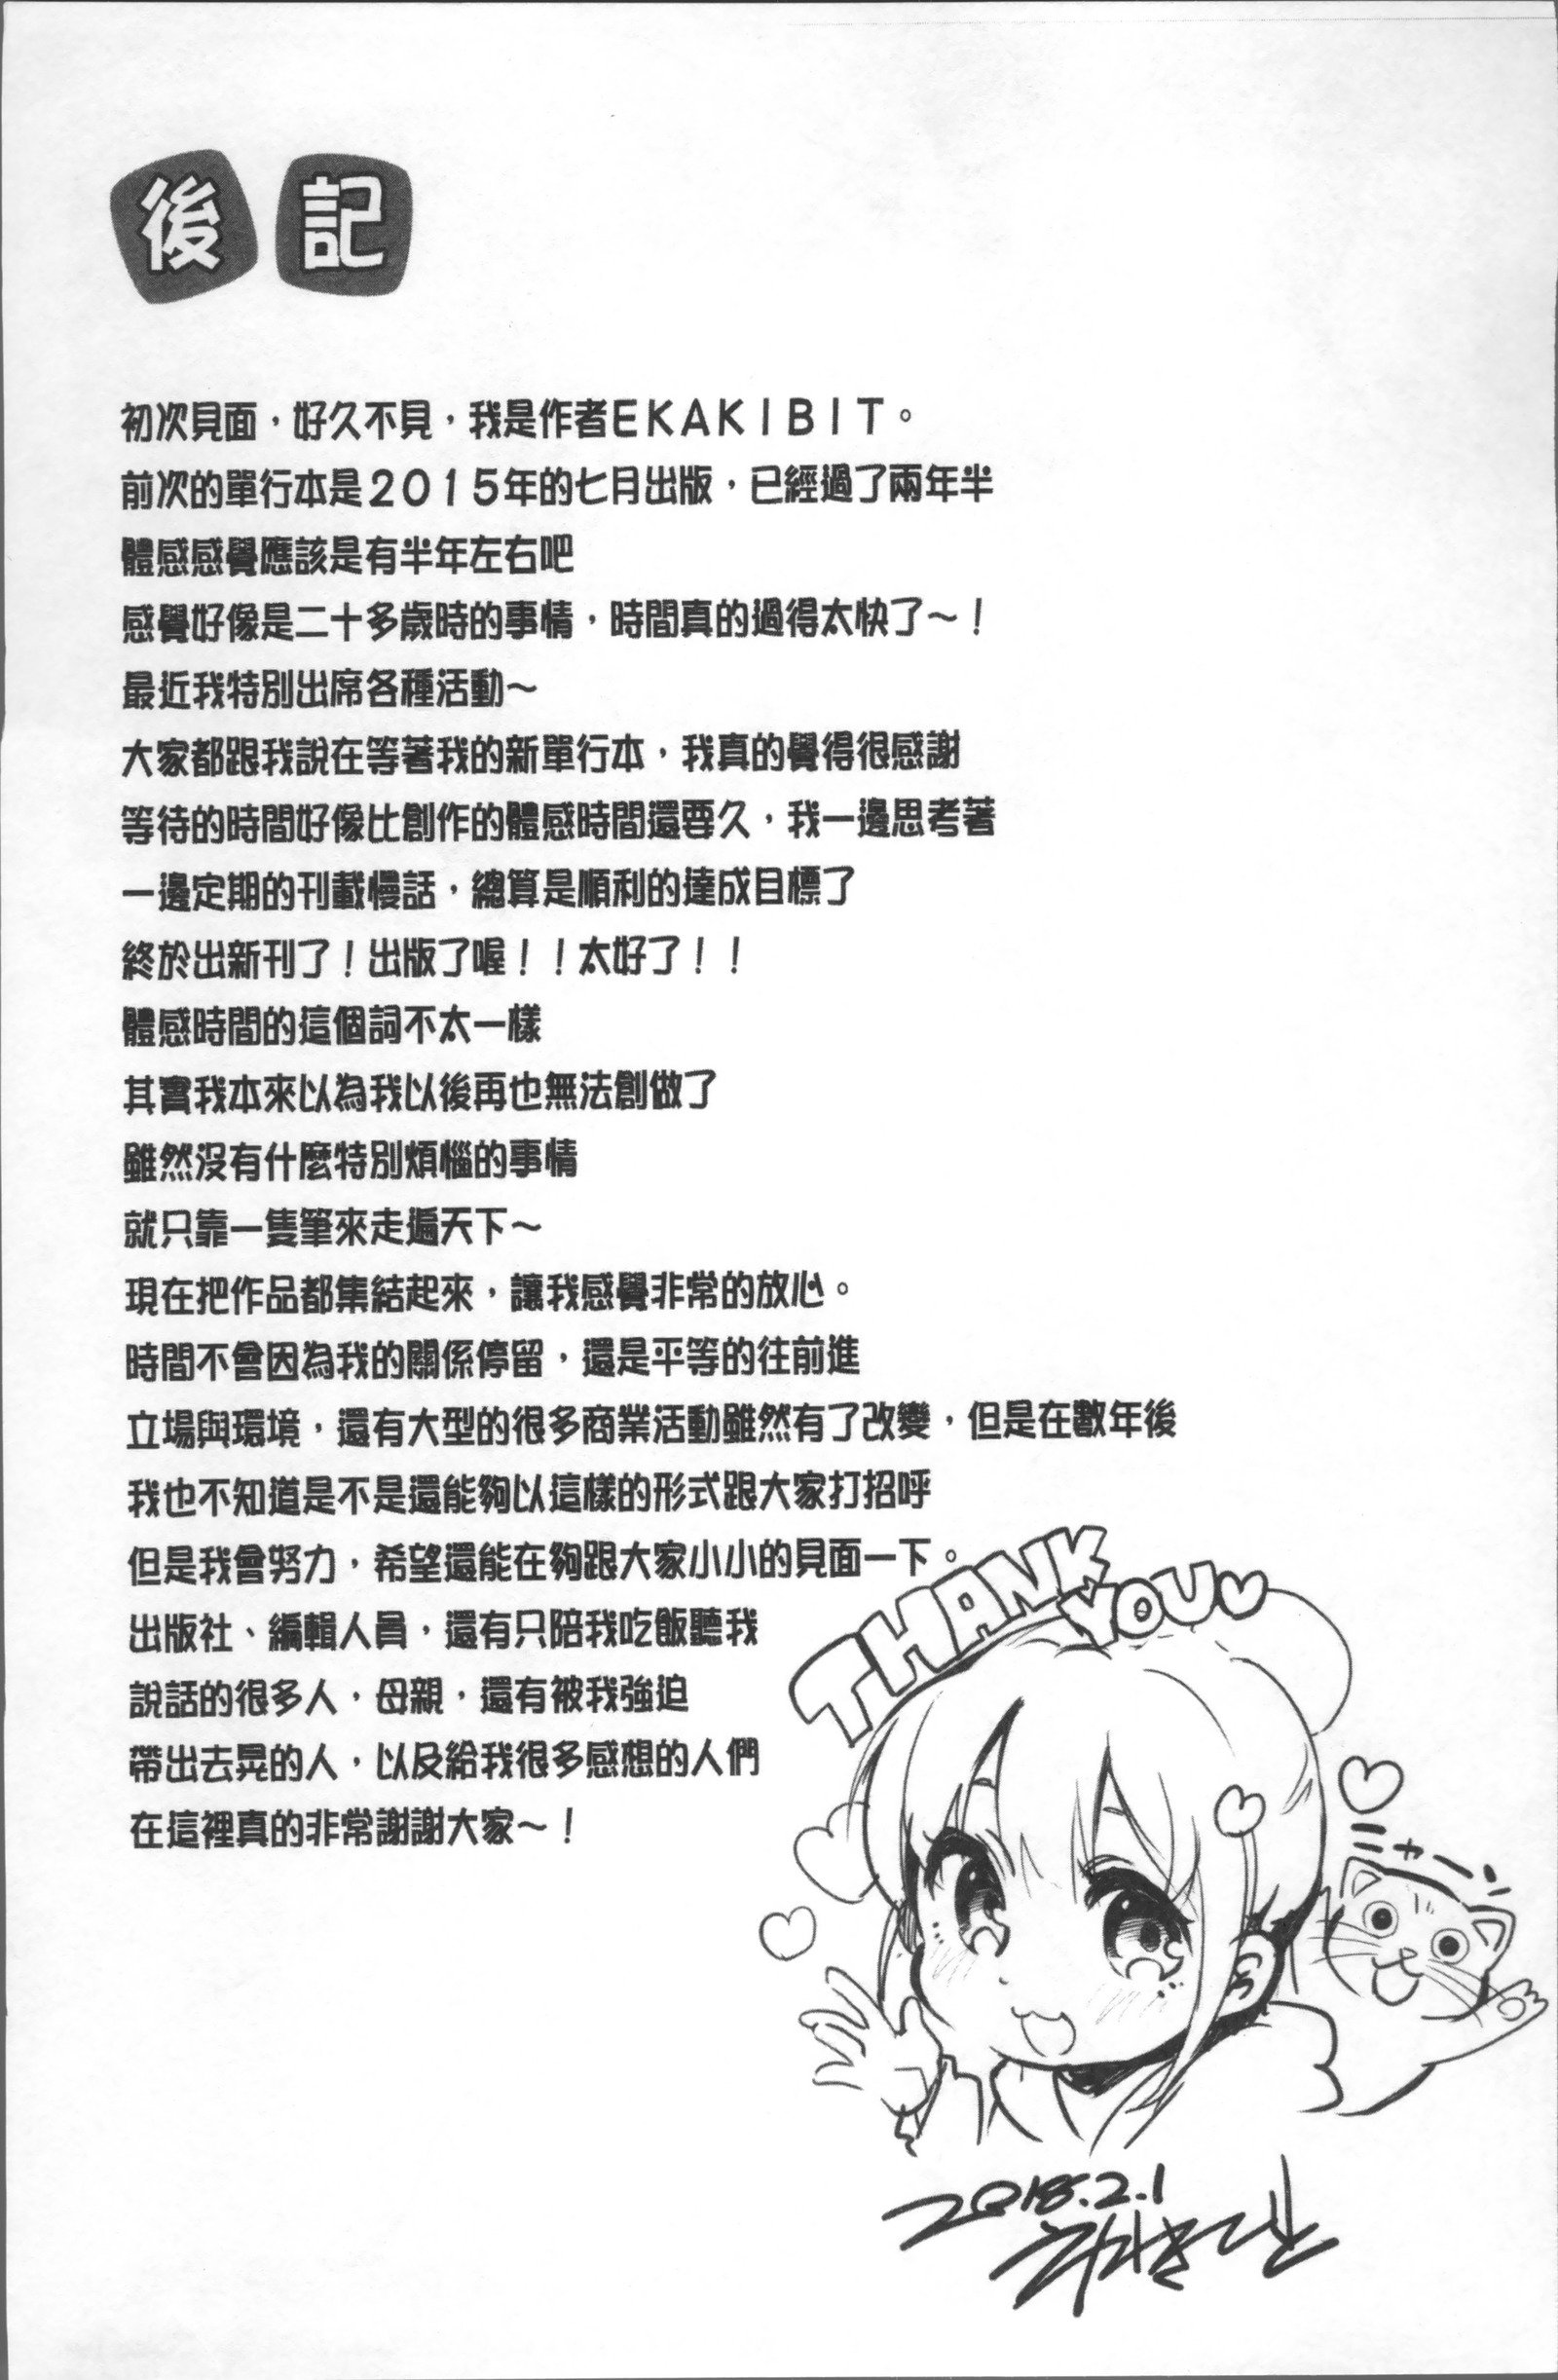 後記
初次見面，好久不見，我是作者EKAKIBIT。
前次的單行本是2015年的七月出版，已經過了兩年半
體感感覺應該是有半年左右吧
感覺好像是二十多歲時的事情，時間真的過得太快了～！
最近我特別出席各種活動～
大家都跟我說在等著我的新單行本，我真的覺得很感謝
等待的時間好像比創作的體感時間還要久，我一邊思考著
一邊定期的刊載慢話，總算是順利的達成目標了
終於出新刊了！出版了喔！！太好了！！
體感時間的這個詞不太一樣
其實我本來以為我以後再也無法創做了
雖然沒有什麼特別煩惱的事情
就只靠一隻筆來走遍天下～
現在把作品都集結起來，讓我感覺非常的放心。
時間不會因為我的關係停留，還是平等的往前進
立場與環境，還有大型的很多商業活動雖然有了改變，但是在數年後
我也不知道是不是還能夠以這樣的形式跟大家打招呼
但是我會努力，希望還能在夠跟大家小小的見面一下。
出版社、編輯人員，還有只陪我吃飯聽我
說話的很多人，母親，還有被我強迫
帶出去晃的人，以及給我很多感想的人們
在這裡真的非常謝謝大家～！
THANK
YOU♡
ニャーン
2018.2.1